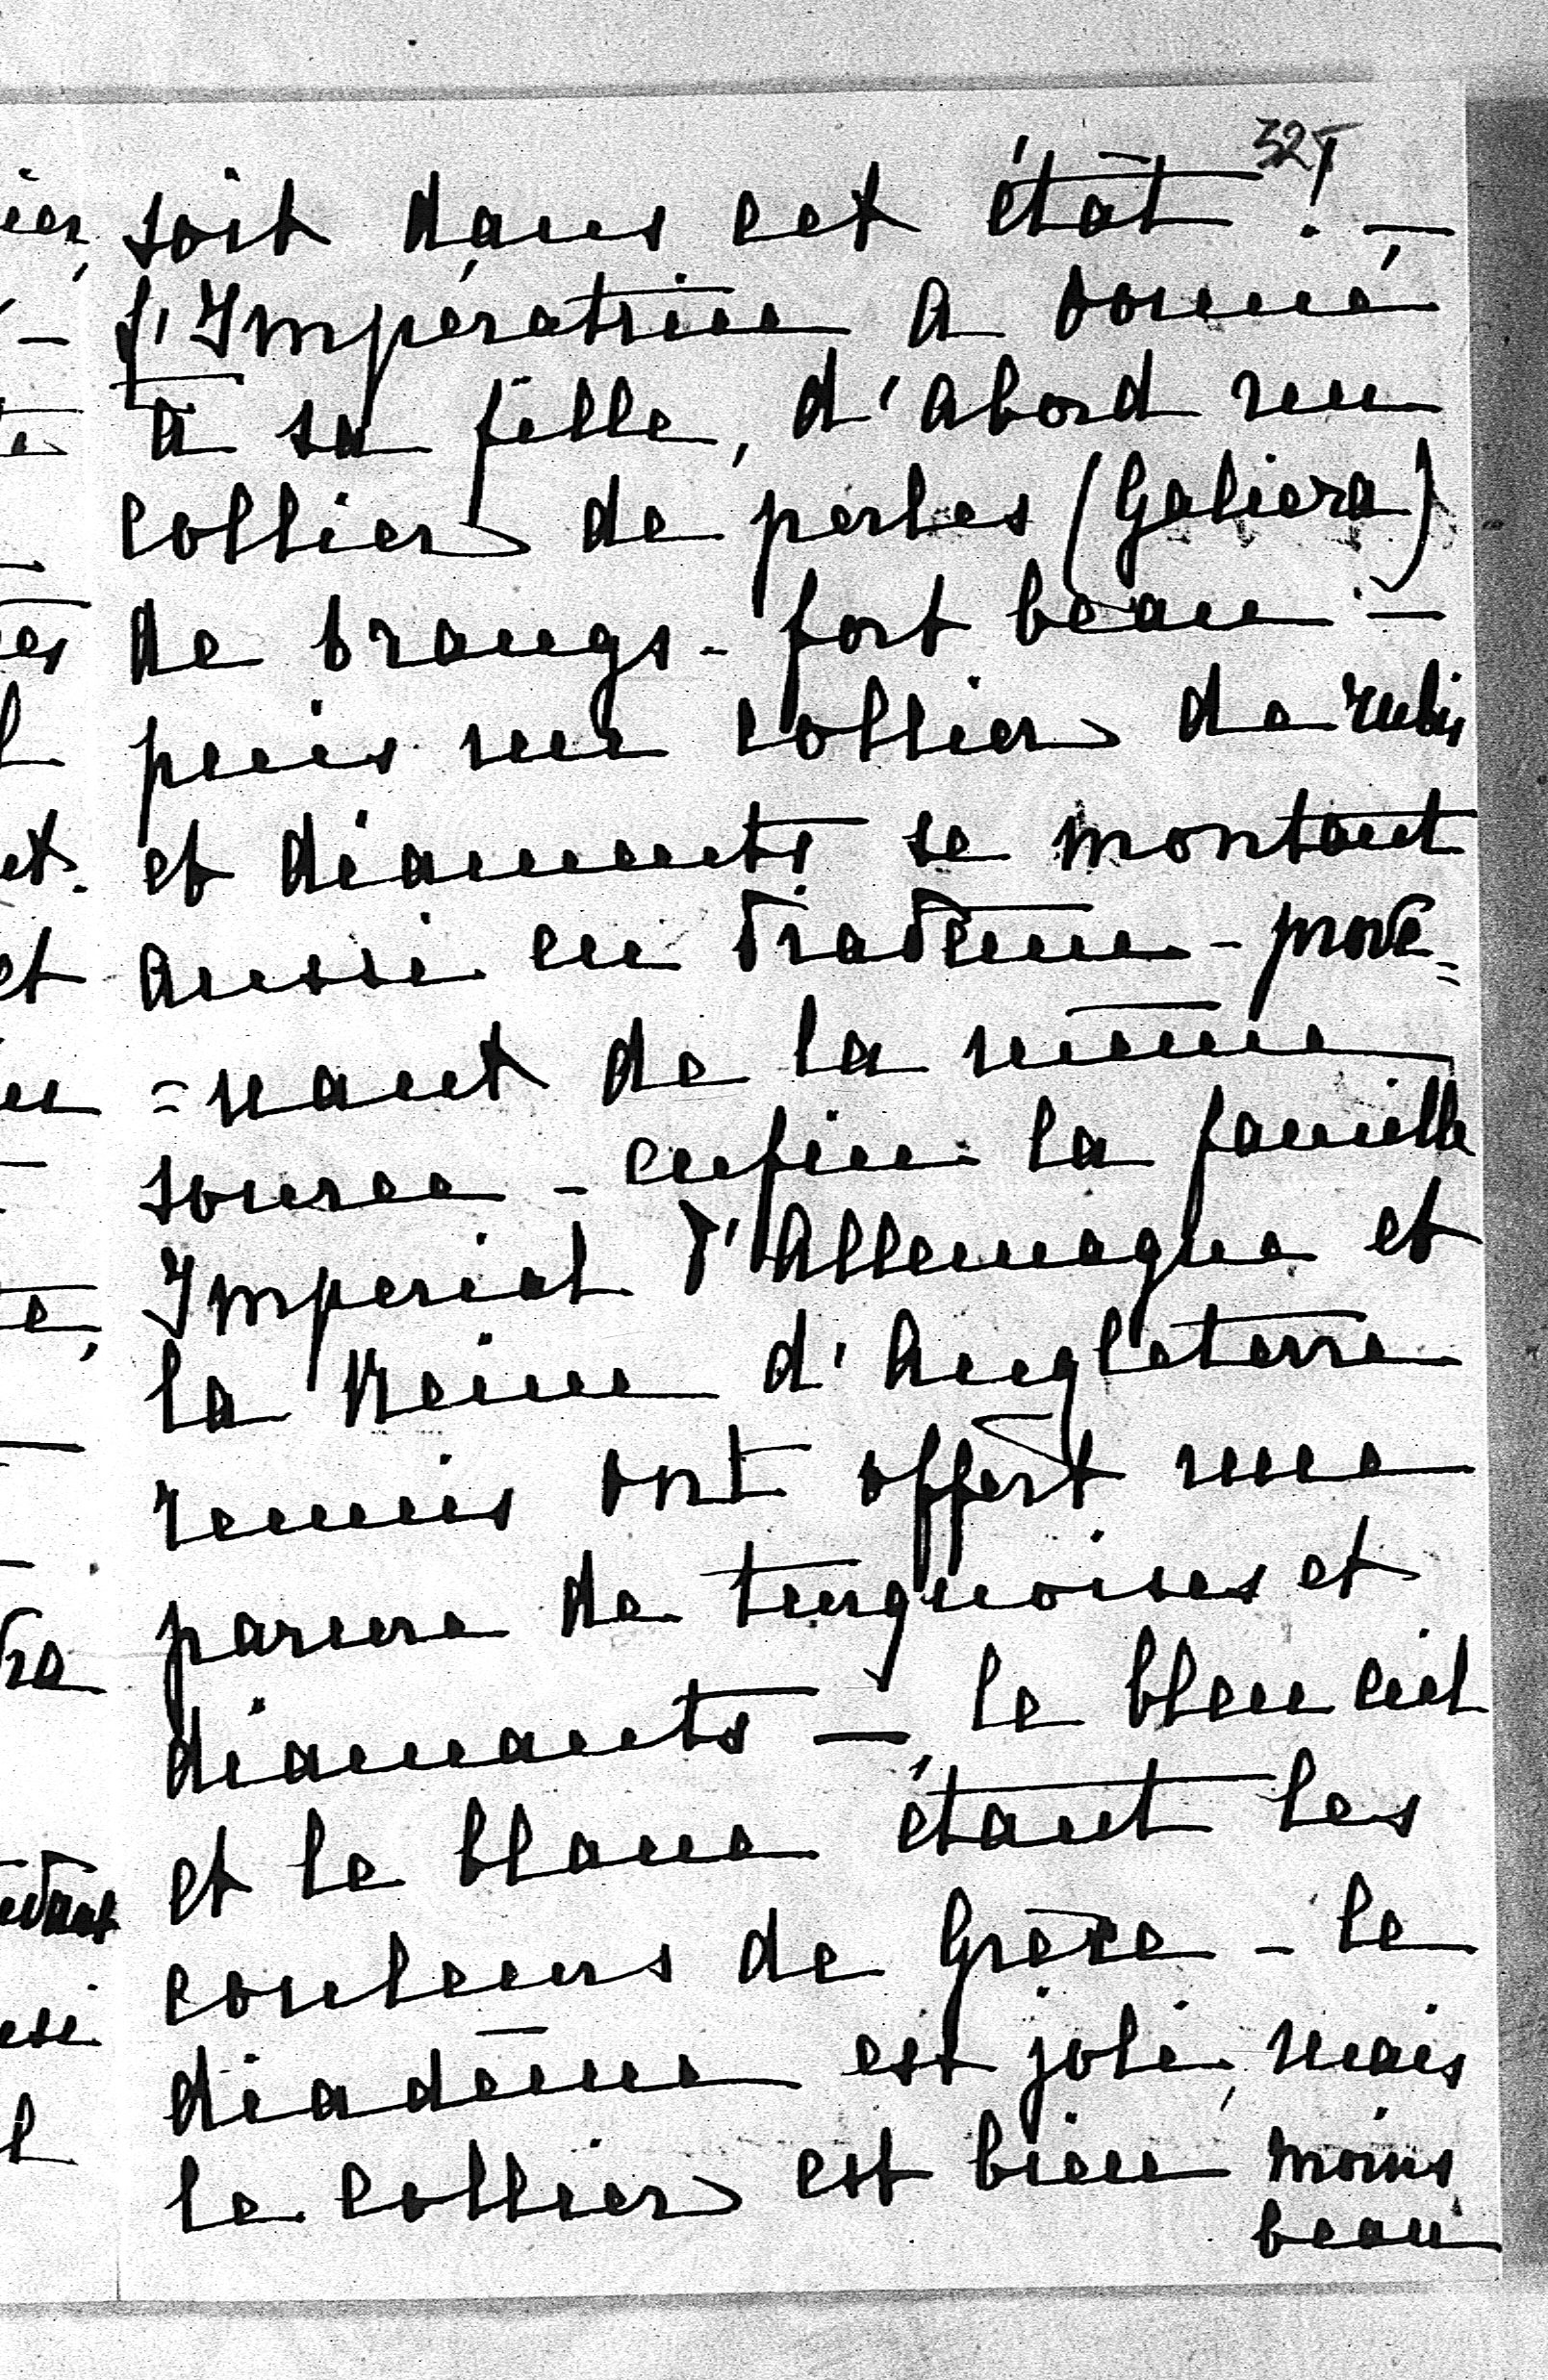 321
soit dans cet état! –
L'Impératrice a donné
à sa fille, d'abord un
collier de perles (Galiera)
de 5 rangs – fort beau –
puis un collier de rubis
et diamants se montant
aussi en diadème – prove=
=nant de la même
source – enfin la famille
Imperial d'Allemagne et
la Reine d'Angleterre
reunis ont offert une
parure de turquoises et
diamants – le bleu ciel
et le blanc étant les
couleurs de Grèce – le
diadème est joli, mais
le collier est bien moins
beau